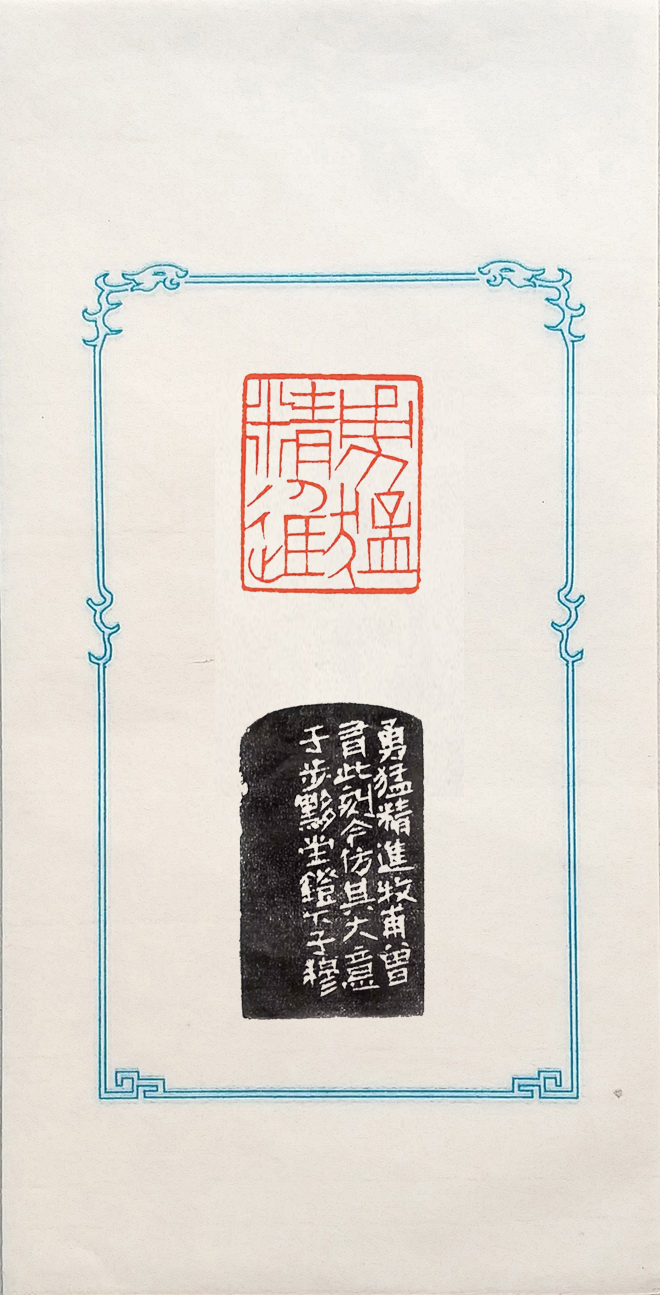 勇猛
精進
勇猛精進牧甫曾
有此刻今仿其大意
于步黟堂鐙下子穆